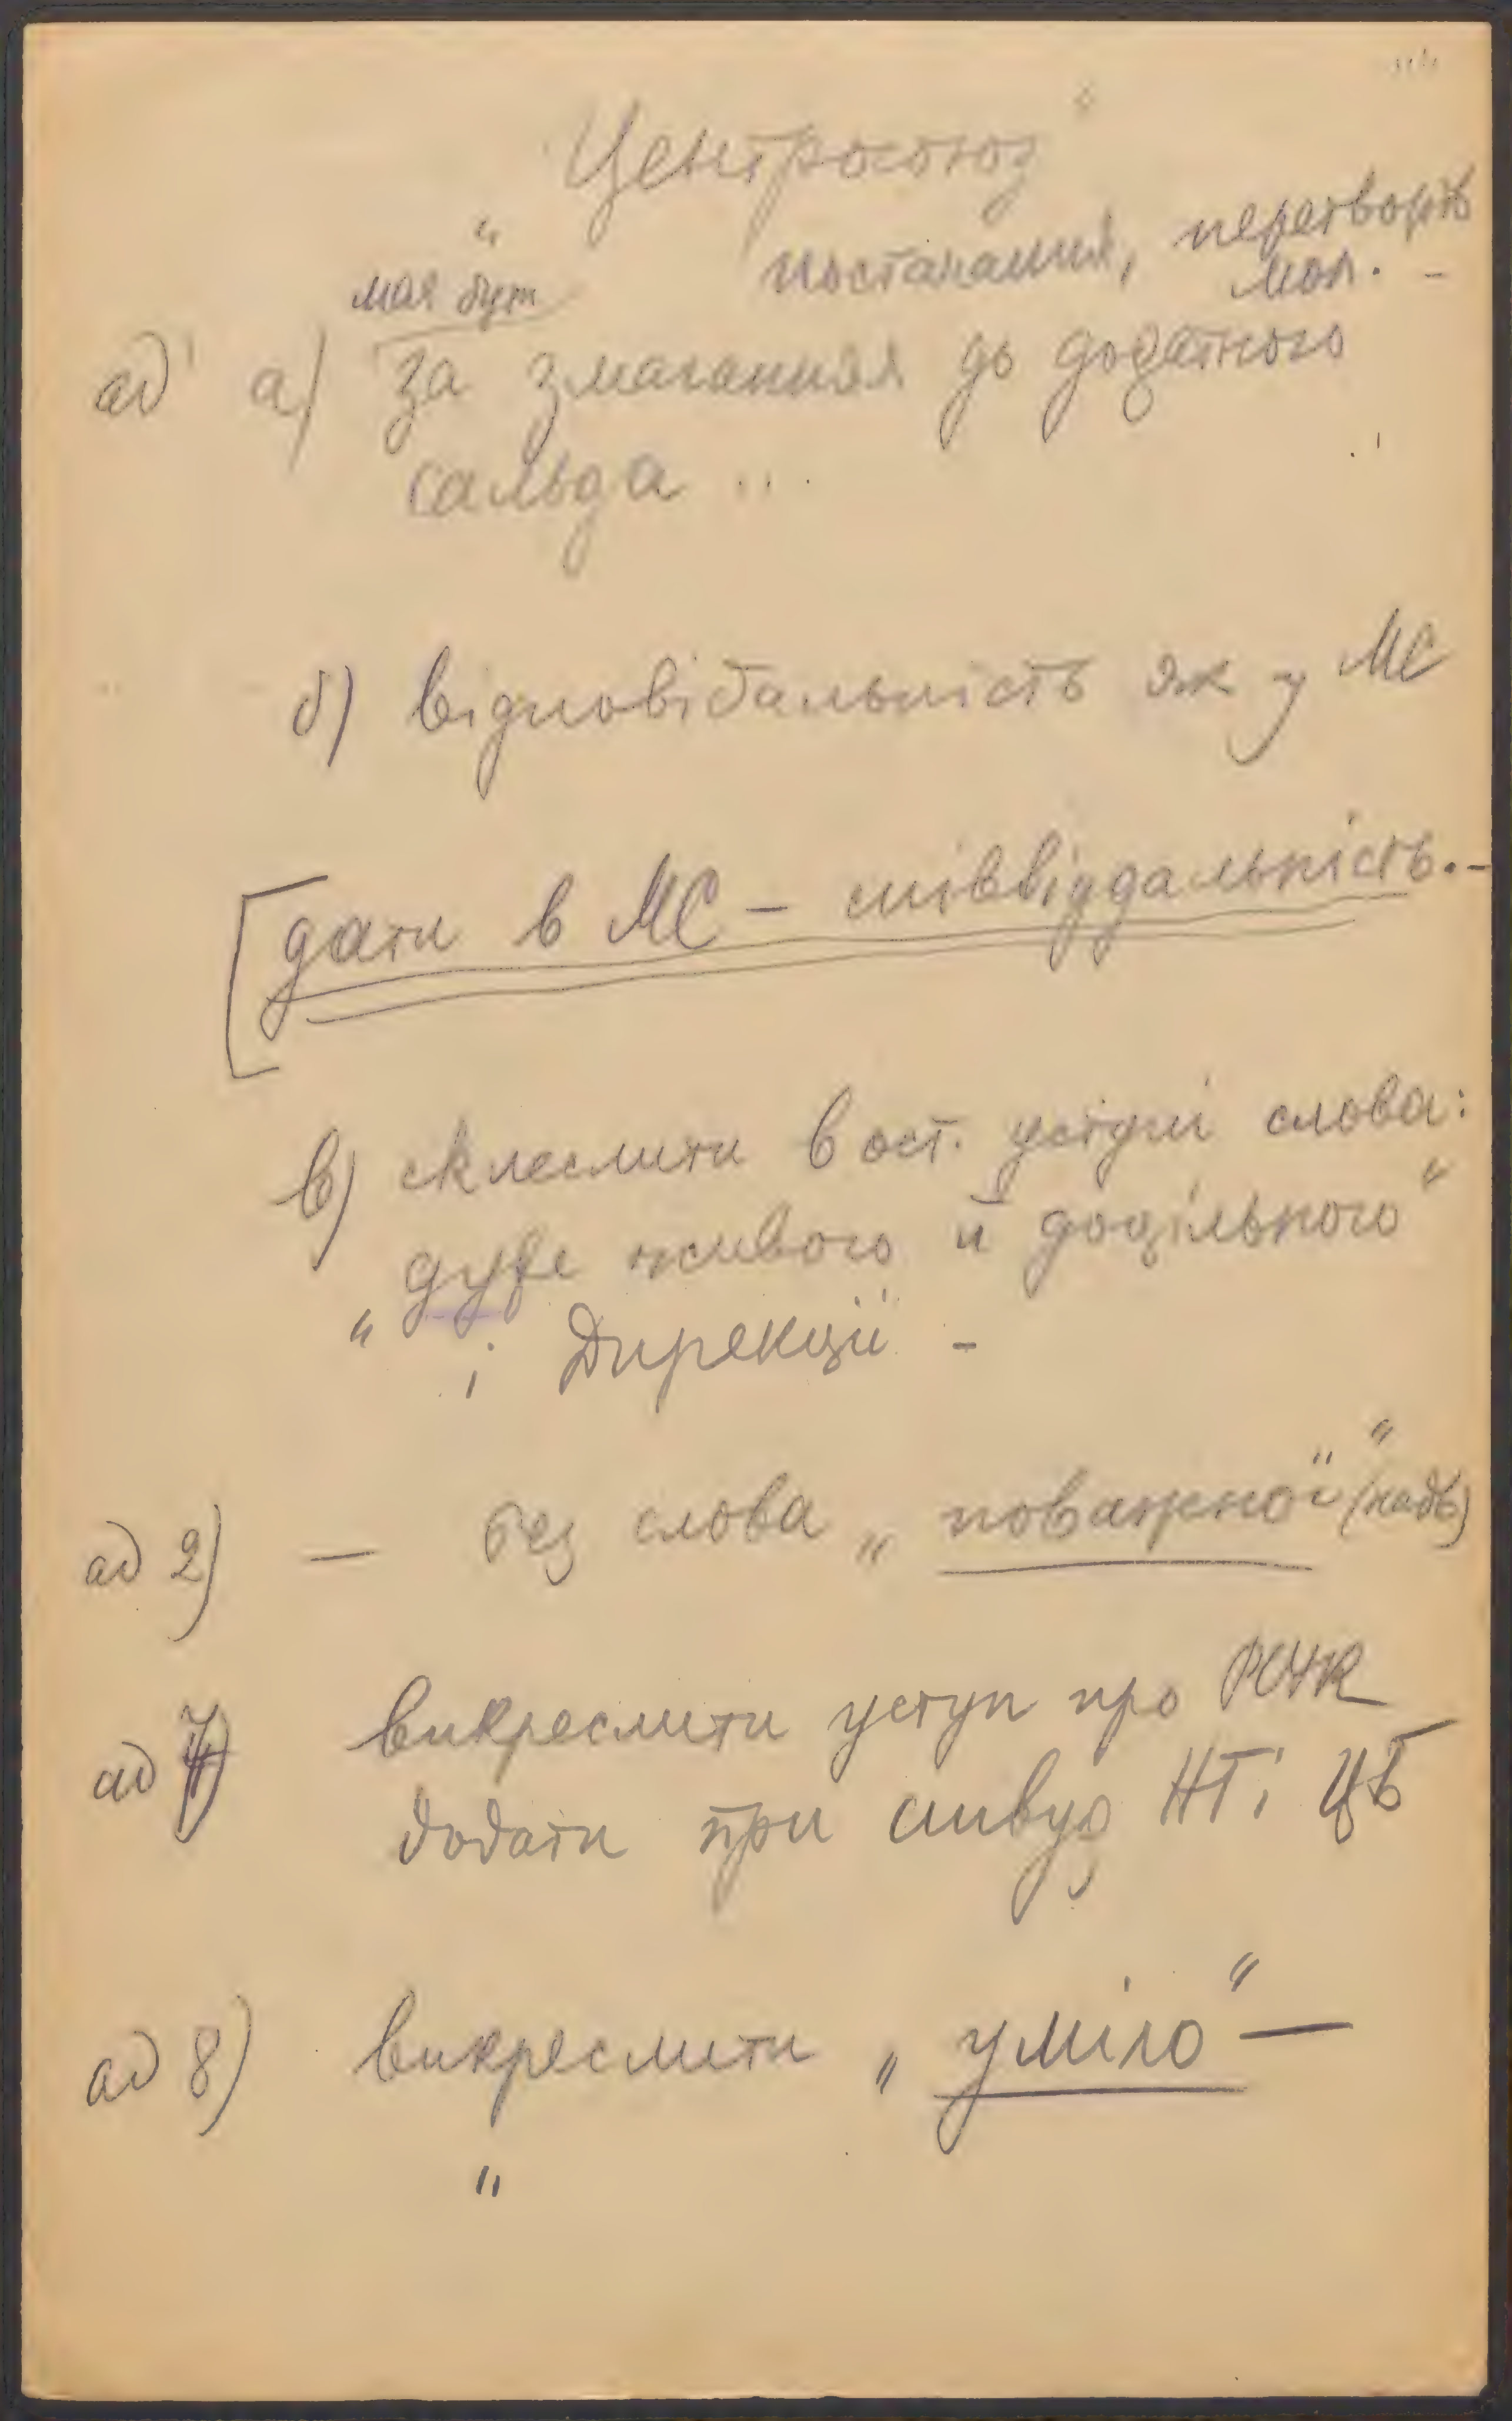 „Центросоюз"
має бути постачання, перетворів
мол. -
ad 1 а) за змагання до додатного
сальда ...
б) відповідальність як у МС
[дати в МС - співвіддальність.-
в) скреслити в ост. уступі слова:
дуже живого й доцільного"
„і Дирекції -
ad 2) — без слова „поважної" (надв)
ad 7) викреслити уступ про РСУК
додати при співуд НТ і ЦБ
ad 8) викреслити „уміло" —
"